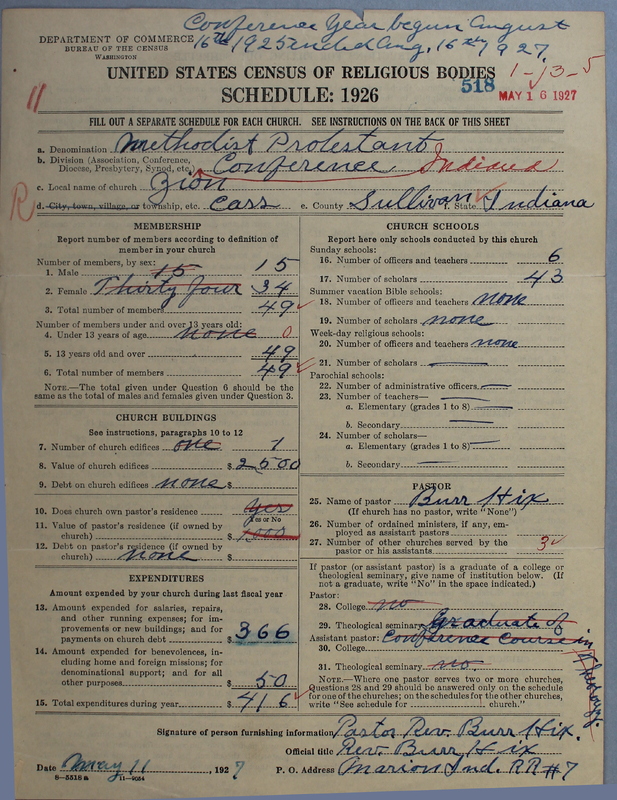 Conference Year begun August
16th 1925 ended Aug. 16th 1927.
DEPARTMENT OF COMMERCE
BUREAU OF THE CENSUS
WASHINGTON
UNITED STATES CENSUS OF RELIGIOUS BODIES
1-13-5
SCHEDULE: 1926
518
MAY 16 1927
11
FILL OUT A SEPARATE SCHEDULE FOR EACH CHURCH. SEE INSTRUCTIONS ON THE BACK OF THIS SHEET
a. Denomination Methodist Protestant
b. Division (Association, Conference, Diocese, Presbytery, Synod, etc.) Conference Indiana
c. Local name of church Zion
R
d. City, town, village, or township, etc. Cass e. County Sullivan State Indiana
MEMBERSHIP
Report number of members according to definition of
member in your church
Number of members, by sex:
1. Male 15 15
2. Female Thirty four 34
3. Total number of members 49
Number of members under and over 13 years old:
4. Under 13 years of age none 0
5. 13 years old and over 49
6. Total number of members 49
NOTE.—The total given under Question 6 should be
same as the total of males and females given under Question 3.
CHURCH BUILDINGS
See instructions, paragraphs 10 to 12
7. Number of church edifices one 1
8. Value of church edifices $ 2500
9. Debt on church edifices none $
10. Does church own pastor's residence Yes
Yes or No
11. Value of pastor's residence (if owned by
church) $ 1000
12. Debt on pastor's residence (if owned by
church) none $
EXPENDITURES
Amount expended by your church during last fiscal year
13. Amount expended for salaries, repairs,
and other running expenses; for im-
provements or new buildings; and for
payments on church debt $ 366
14. Amount expended for benevolences, in-
cluding home and foreign missions; for
denominational support; and for all
other purposes $ 50
15. Total expenditures during year $ 416
CHURCH SCHOOLS
Report here only schools conducted by this church
Sunday schools:
16. Number of officers and teachers 6
17. Number of scholars 43
Summer vacation Bible schools:
18. Number of officers and teachers none
19. Number of scholars none
Week-day religious schools:
20. Number of officers and teachers none
21. Number of scholars
Parochial schools:
22. Number of administrative officers
23. Number of teachers—
a. Elementary (grades 1 to 8)
b. Secondary
24. Number of scholars—
a. Elementary (grades 1 to 8)
b. Secondary
PASTOR
25. Name of pastor Burr Hix
(If church has no pastor, write "None")
26. Number of ordained ministers, if any, em-
ployed as assistant pastors
27. Number of other churches served by the
pastor or his assistants 3
If pastor (or assistant pastor) is a graduate of a college or
theological seminary, give name of institution below. (If
not a graduate, write "No" in the space indicated.)
Pastor:
28. College no
29. Theological seminary Graduate of
Assistant pastor: Conference Course in Theology
30. College
31. Theological seminary no
NOTE.—Where one pastor serves two or more churches,
Questions 28 and 29 should be answered only on the schedule
for one of the churches; on the schedules for the other churches,
write "See schedule for church."
Signature of person furnishing information Pastor Rev. Burr Hix.
Official title Rev. Burr Hix
Date May 11, 1927 P. O. Address Marion Ind. RR #7
8-5518 a 11-9054